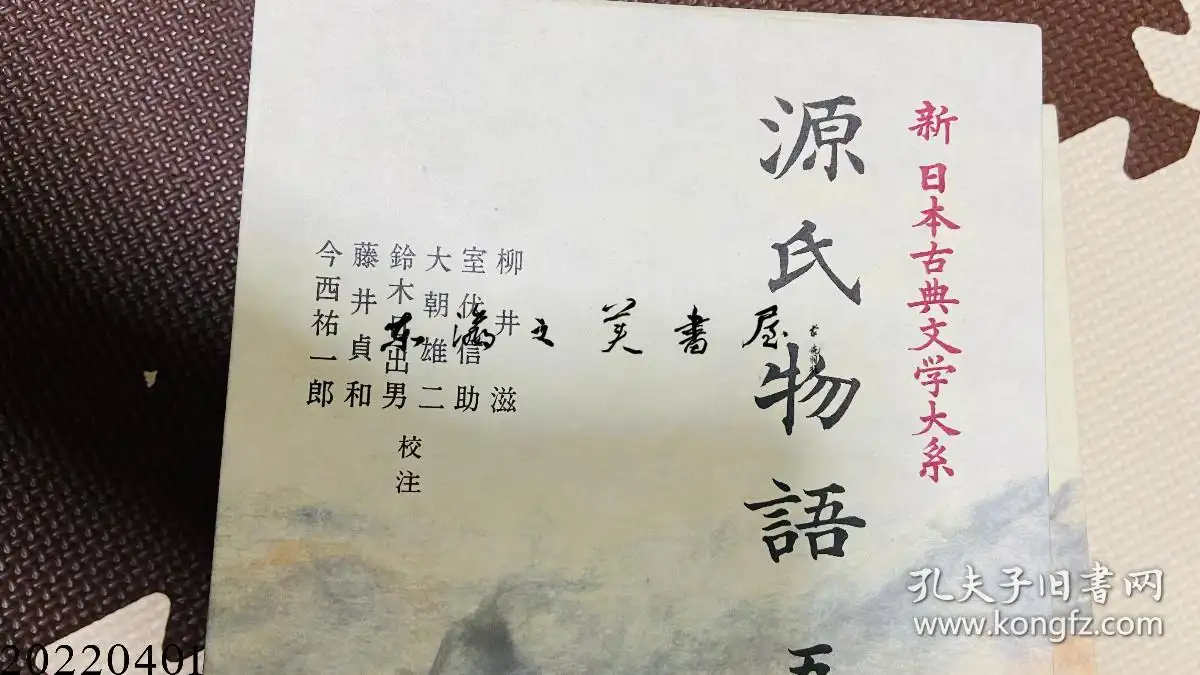 新日本古典文学大系
源氏物語 五
柳井 滋
室伏信助
大朝雄二
鈴木日出男
藤井貞和
今西祐一郎
校注
东瀛之美書屋
孔夫子旧書网
www.kongfz.com
20220401